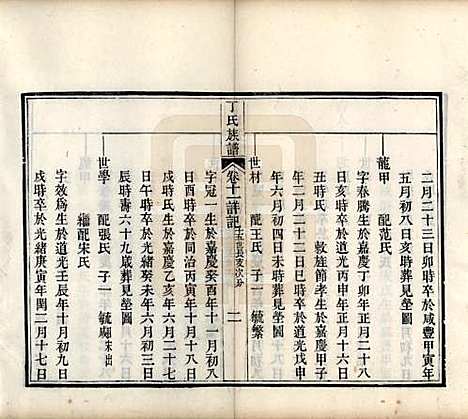 二月二十三日卯時卒於咸豐甲寅年
五月初八日亥時葬見塋圖
龍甲 配范氏
字春騰生於嘉慶丁卯年正月二十八
日亥時卒於道光丙申年正月十六日
丑時氏 敦族節孝生於嘉慶甲子
年二月二十二日巳時卒於道光戊申
年六月初四日未時葬見塋圖
世材 配王氏 子一 毓蘩
丁氏族譜
卷十二譜記
二
字冠一生於嘉慶癸酉年十一月初八
日酉時卒於同治丙寅年十月十八日
戌時氏生於嘉慶乙亥年六月二十七
日午時卒於光緒癸未年六月初三日
辰時壽六十九歲葬見塋圖
世學 配張氏 子一 毓 未出
繼配宋氏
字效爲生於道光壬辰年十月初九日
戌時卒於光緒庚寅年閏二月十七日